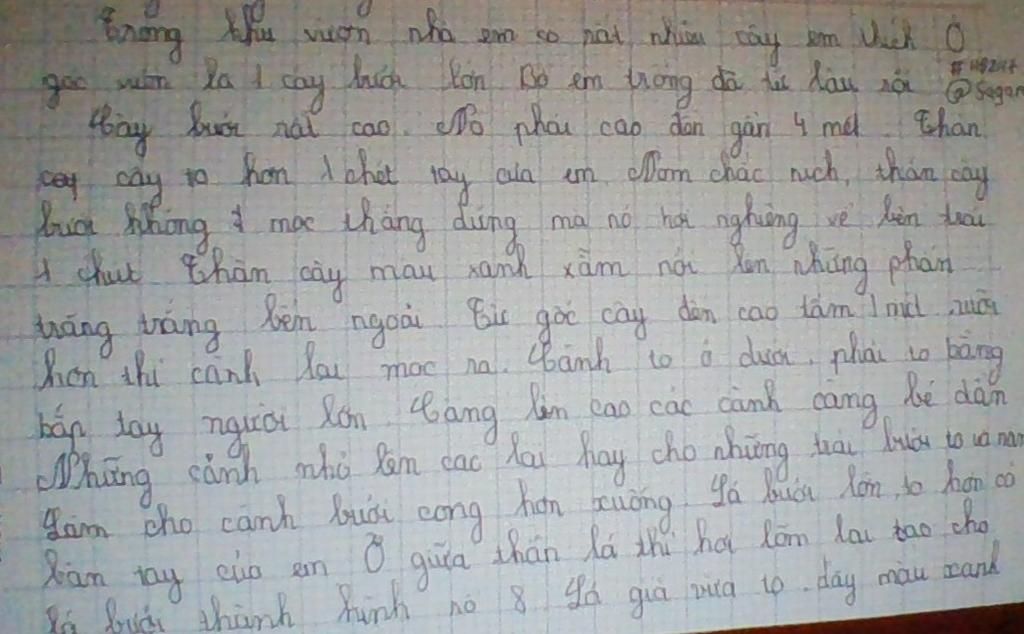 Trong khu vườn nhà em có rất nhiều cây em thích Ở
góc vườn là 1 cây bưởi lớn Bố em trồng đã từ lâu rồi
Cây bưởi rất cao. Nó phải cao đến gần 4 mét. Thân
cây to hơn 1 chét tay của em. Nom chắc nịch, thân cây
bưởi không mọc thẳng đứng mà nó hơi nghiêng về bên trái
1 chút Thân cây màu xanh xẫm nổi lên những phấn
trăng trắng bên ngoài. Từ gốc cây đến cao tầm 1 mét rưỡi
hơn thì cành lại mọc ra. Cành to ở dưới. phải to bằng
bắp tay người lớn. Càng lên cao các cành càng bé dần
Những cành nhỏ lắm các lại hay cho những trái bưởi to và nặn
Làm cho cành bưởi cong hơn xuống. Lá bưởi lớn, to hơn cả
bàn tay của em Ở giữa thân lá thì hơi lõm lại tạo cho
lá bưởi thành hình nó 8 Lá già vừa to. dày màu xanh
@Sagan